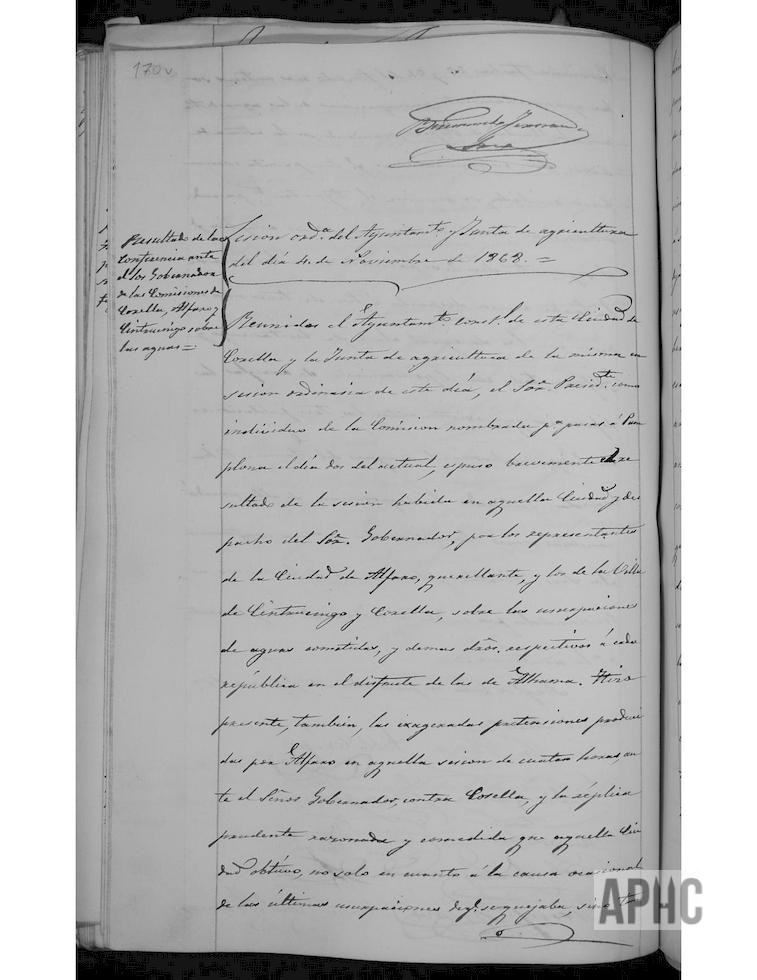 170v
Sesion ord.ª del Ayuntam.to y Junta de agricultura
del día 4 de Noviembre de 1868. =
Resultado de la
conferencia ante
el Sor Gobernador
de las Comisiones de
Corella, Alfaro y
Cintruenigo sobre
las aguas =
Reunidos el Ayuntam.to Const.l de esta Ciudad de
Corella y la Junta de agricultura de la misma en
sesion ordinaria de este día, el Sor. Presid.te como
individuo de la Comision nombrada p.ª pasar á Pam
plona el día dos del actual, espuso brevemente el re
sultado de la sesion habida en aquella Ciudad y des
pacho del Sor. Gobernador, por los representantes
de la Ciudad de Alfaro, querellante, y los de la Villa
de Cintruenigo y Corella, sobre las usurpaciones
de aguas cometidas, y demas dros. respectivos á cada
república en el disfrute de las de Alhama. Hizo
presente, tambien, las exageradas pretensiones produci
das por Alfaro en aquella sesion de cuatro horas, an
te el Señor Gobernador, contra Corella, y la réplica
prudente razonada y comedida que aquella Ciu
dad obtúvo, no solo en cuanto á la causa ocasional
de las últimas usurpaciones de q.e se quejaba, sino
APHC